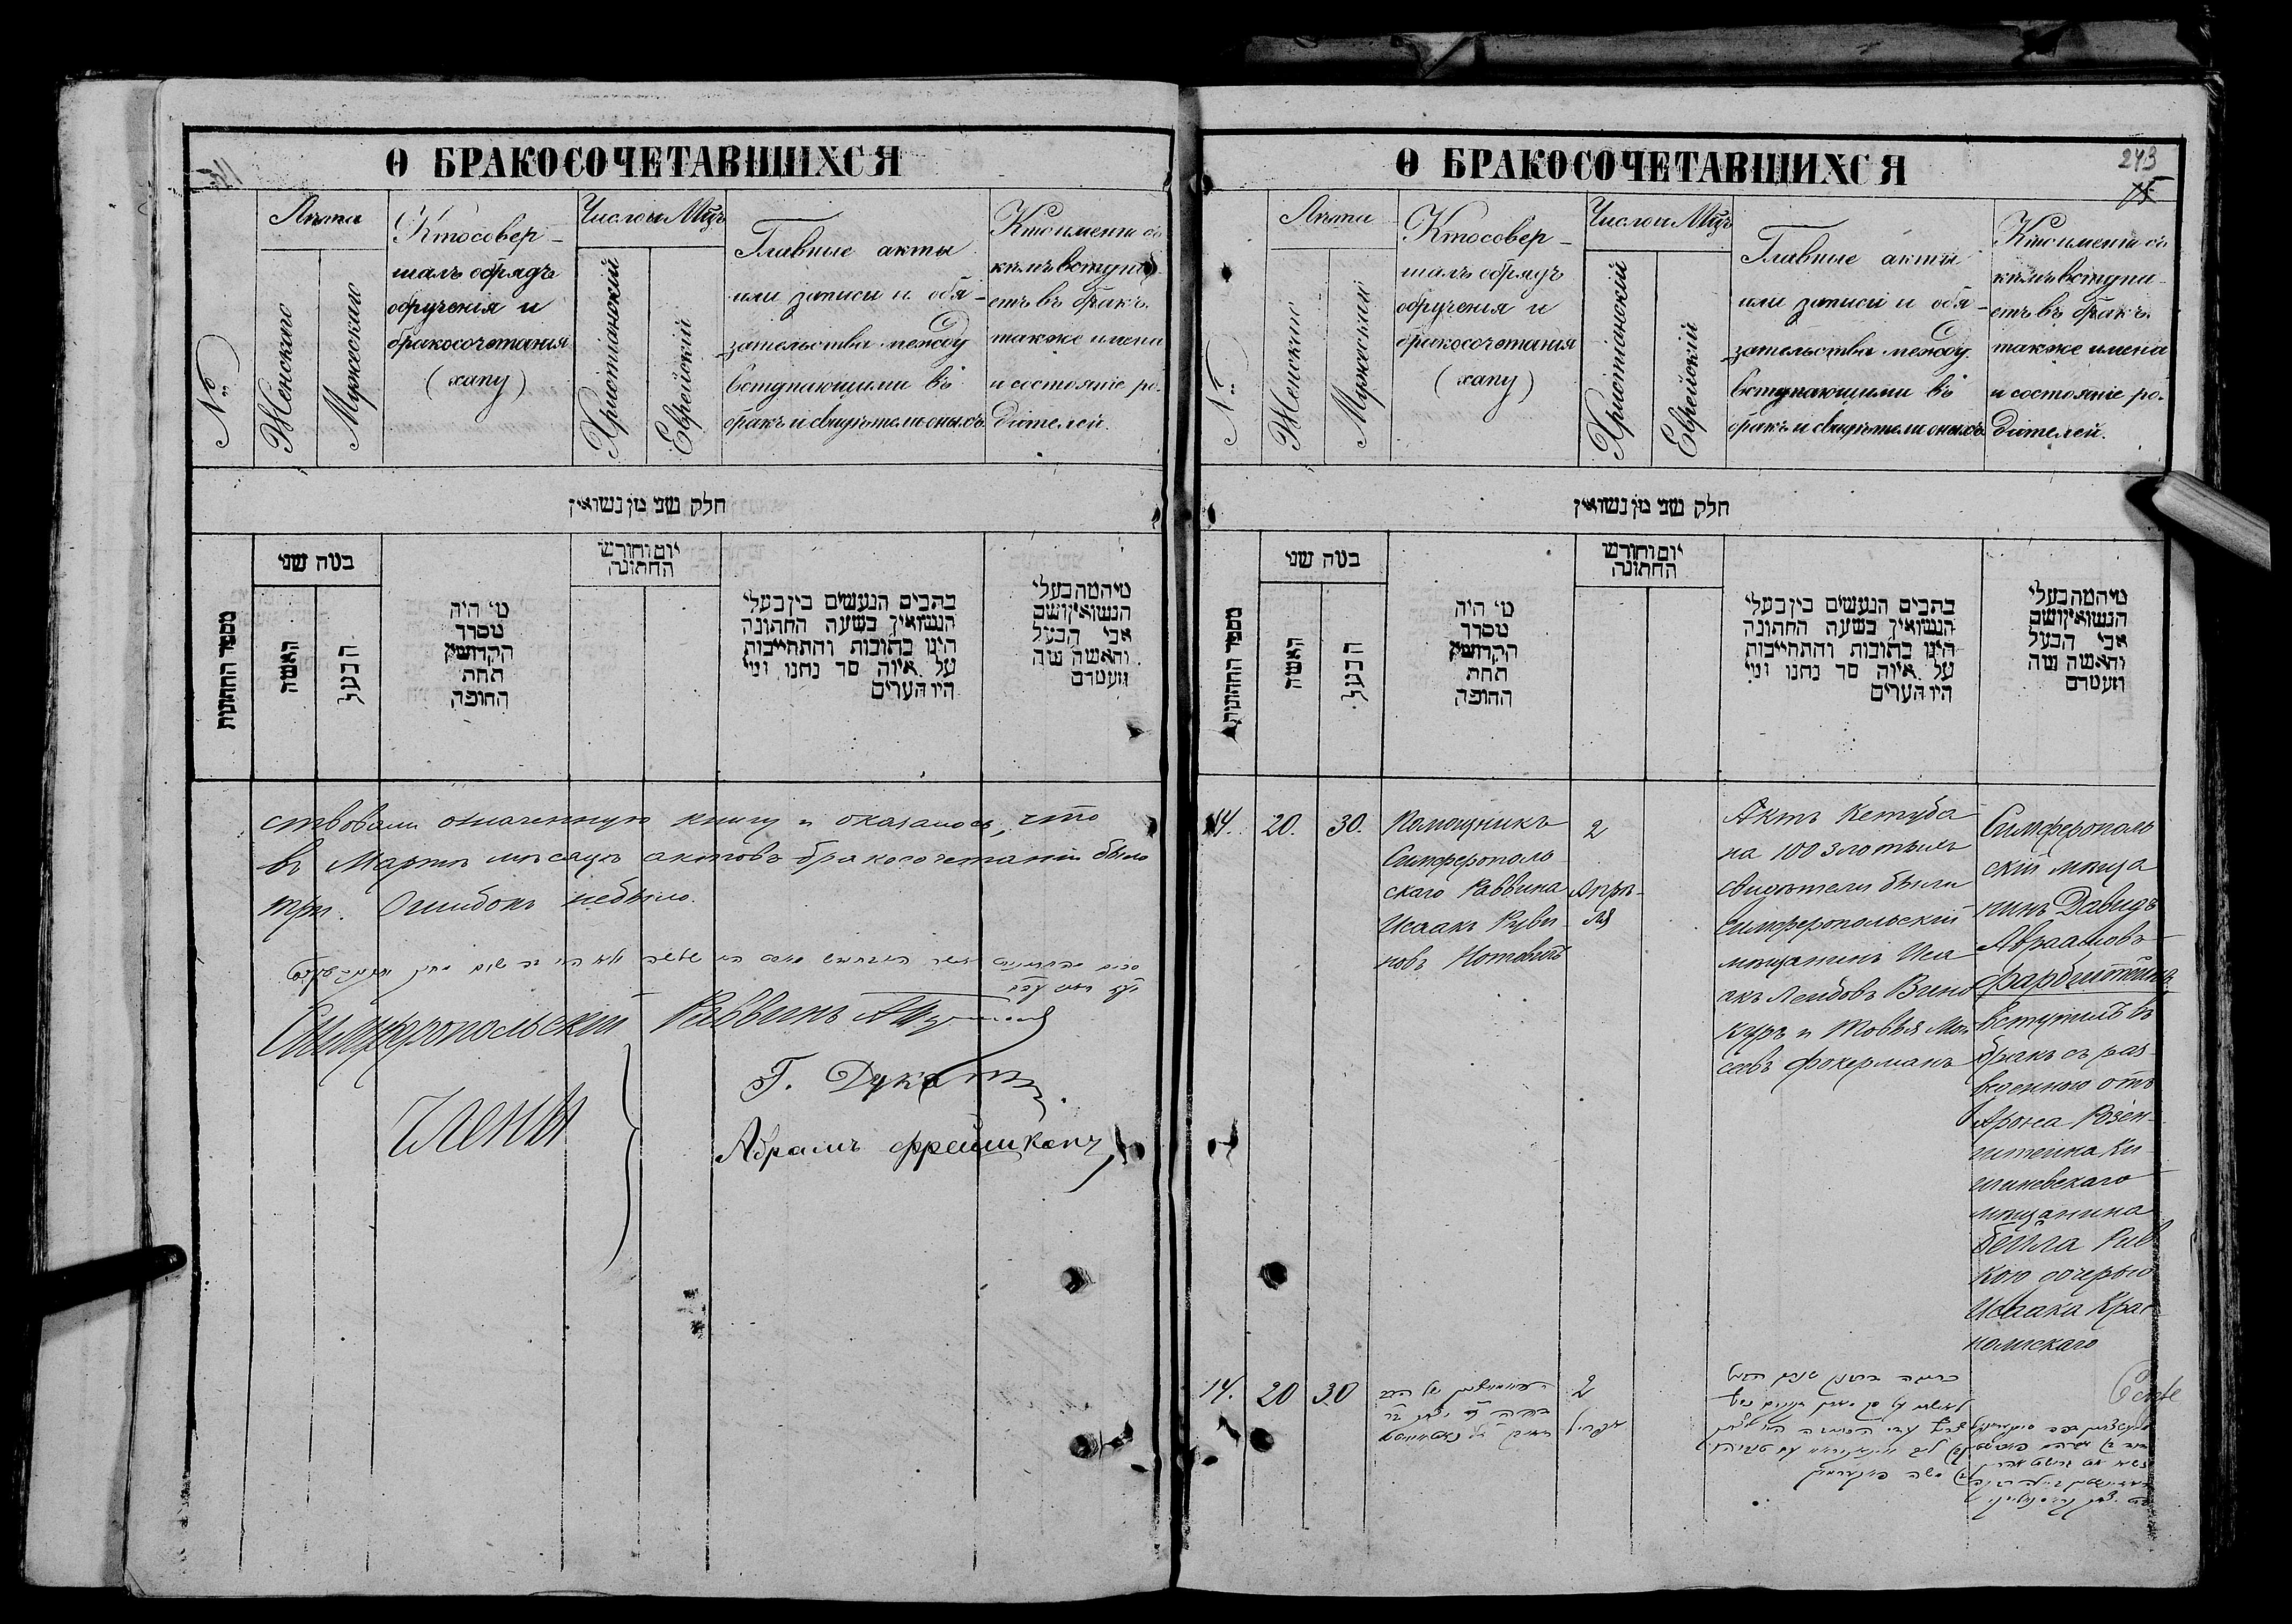 Ѳ БРАКОСОЧЕТАВШИХСЯ
№
Лѣта
Женскаго
Мужескаго
Кто совер-
шалъ обрядъ
обрученія и
бракосочетанія
(хапу)
Число и Мцъ
Христіанскій
Еврейскій
Главные акты
или записи и обя-
зательства между
вступающими въ
бракъ и свидѣтели оныхъ
Кто именно съ
кѣмъ вступа-
етъ въ бракъ.
также имена
и состояніе ро-
дителей.
חלק שני מן נשואין
מספר החתונות
כמה שני
האשה
הבעל
מי היה
מסדר
הקדושין
תחת
החופה
יום וחורש
החתונה
כתבים הנעשים בין בעלי
הנשואין בשעה החתונה
היינו כתובות והתחייבות
על איזה סך נתנו ומי
היו העדים
מיהמה בעלי
הנשואין ושם
אבי הבעל
והאשה מה
מעמדם
ствовали означенную книгу и оказалось, что
въ Мартѣ мѣсяцѣ актовъ бракосочетаній было
три. Ошибокъ небыло.
Симферопольскій Раввинъ
Члены
Г. Дука
Абрамъ Фрейшкенъ
Ѳ БРАКОСОЧЕТАВШИХСЯ
243
№
Лѣта
Женскаго
Мужескій
Кто совер-
шалъ обрядъ
обрученія и
бракосочетанія
(хапу)
Число и Мцъ
Христіанскій
Еврейскій
Главные акты
или записи и обя-
зательства между
вступающими въ
бракъ и свидѣтели оныхъ
Кто именно съ
кѣмъ вступа-
етъ въ бракъ.
также имена
и состояніе ро-
дителей.
חלק שני מן נשואין
מספר החתונות
כמה שני
האשה
הבעל
מי היה
מסדר
הקדושין
תחת
החופה
יום וחורש
החתונה
כתבים הנעשים בין בעלי
הנשואין בשעה החתונה
היינו כתובות והתחייבות
על איזה סך נתנו ומי
היו העדים
מיהמה בעלי
הנשואין ושם
אבי הבעל
והאשה מה
מעמדם
14.
20.
30.
Помощникъ
Симферополь
скаго Раввина
Исаакъ Руви-
новъ Нотовичъ
2
Апрѣ-
ля
Актъ Кетуба
на 100 злотыхъ
свидѣтели были
Симферопольскій
мѣщанинъ Иса
акъ Лейбовъ Вино
куръ и Товья Мои
сеевъ Фокерманъ
Симферополь
скій мѣща
нинъ Давидъ
Авраамовъ
Фарбштейнъ
вступилъ въ
бракъ съ раз-
веденною отъ
Арона Розен-
штейна Ки
шиневскаго
мѣщанина
Бейла Рив
кою дочерью
Исаака Крас
нопольскаго
14.
20
30
2
אפריל